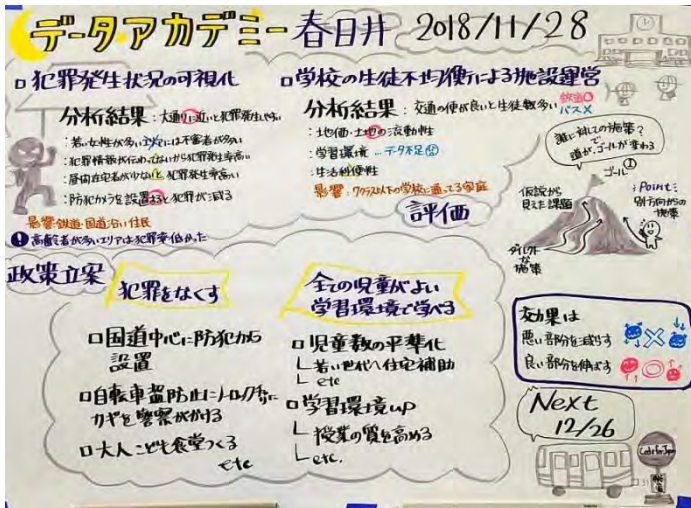 データアカデミー春日井 2018/11/28
□犯罪発生状況の可視化
分析結果：大通りに近いと犯罪発生しやすい
：若い女性が多いエリアには不審者が多い
：犯罪情報が伝わってないから犯罪発生率高い
：昼間在宅者が少ないと、犯罪発生率高い
：防犯カメラを設置すると犯罪が減る
影響：鉄道・国道沿い住民
! 高齢者が多いエリアは犯罪率低かった
□学校の生徒不均衡による施設運営
分析結果：交通の便が良いと生徒数多い
鉄道○
バス×
：土地価・土地の流動性
：学習環境 …データ不足
：生活利便性
影響：クラス以下の学校に通ってる家庭
評価
誰に対しての施策？
で
道が、ゴールが変わる
ゴール
仮説から
見えた課題
ダイレクト
な
施策
：Point：
別方向からの
施策
政策立案
犯罪をなくす
□国道中心に防犯カメラ
設置
□自転車盗防止に
カギを警察がかける
□大人こども食堂つくる
etc
全ての児童がよい
学習環境で学べる
□児童数の平準化
└若い世代へ住宅補助
└etc
□学習環境up
└授業の質を高める
└etc.
効果は
悪い部分を減らす
良い部分を伸ばす
Next
12/26
Code for Japan